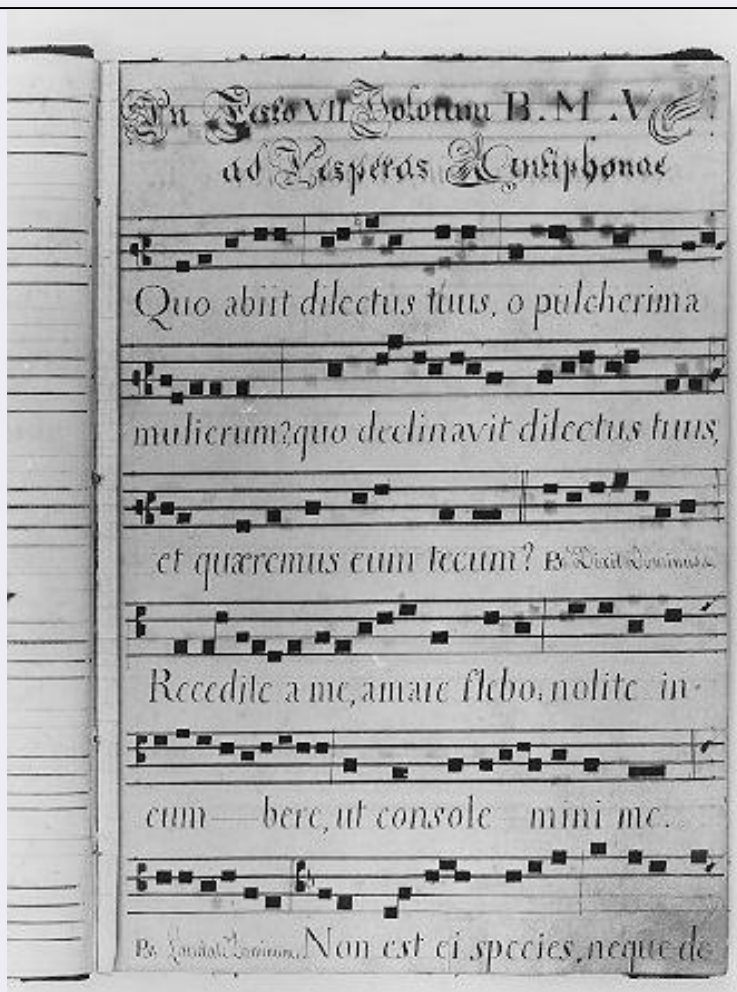 In Festo VII Dolorum B. M. V.
ad Vesperas Antiphonae
Quo abiit dilectus tuus, o pulcherima
mulierum? quo declinavit dilectus tuus,
et quæremus eum tecum? Ps. Dixit Dominus
Recedite a me, amare flebo: nolite in-
cum—bere, ut console - mini me.
Ps. Non est ei species, neque de